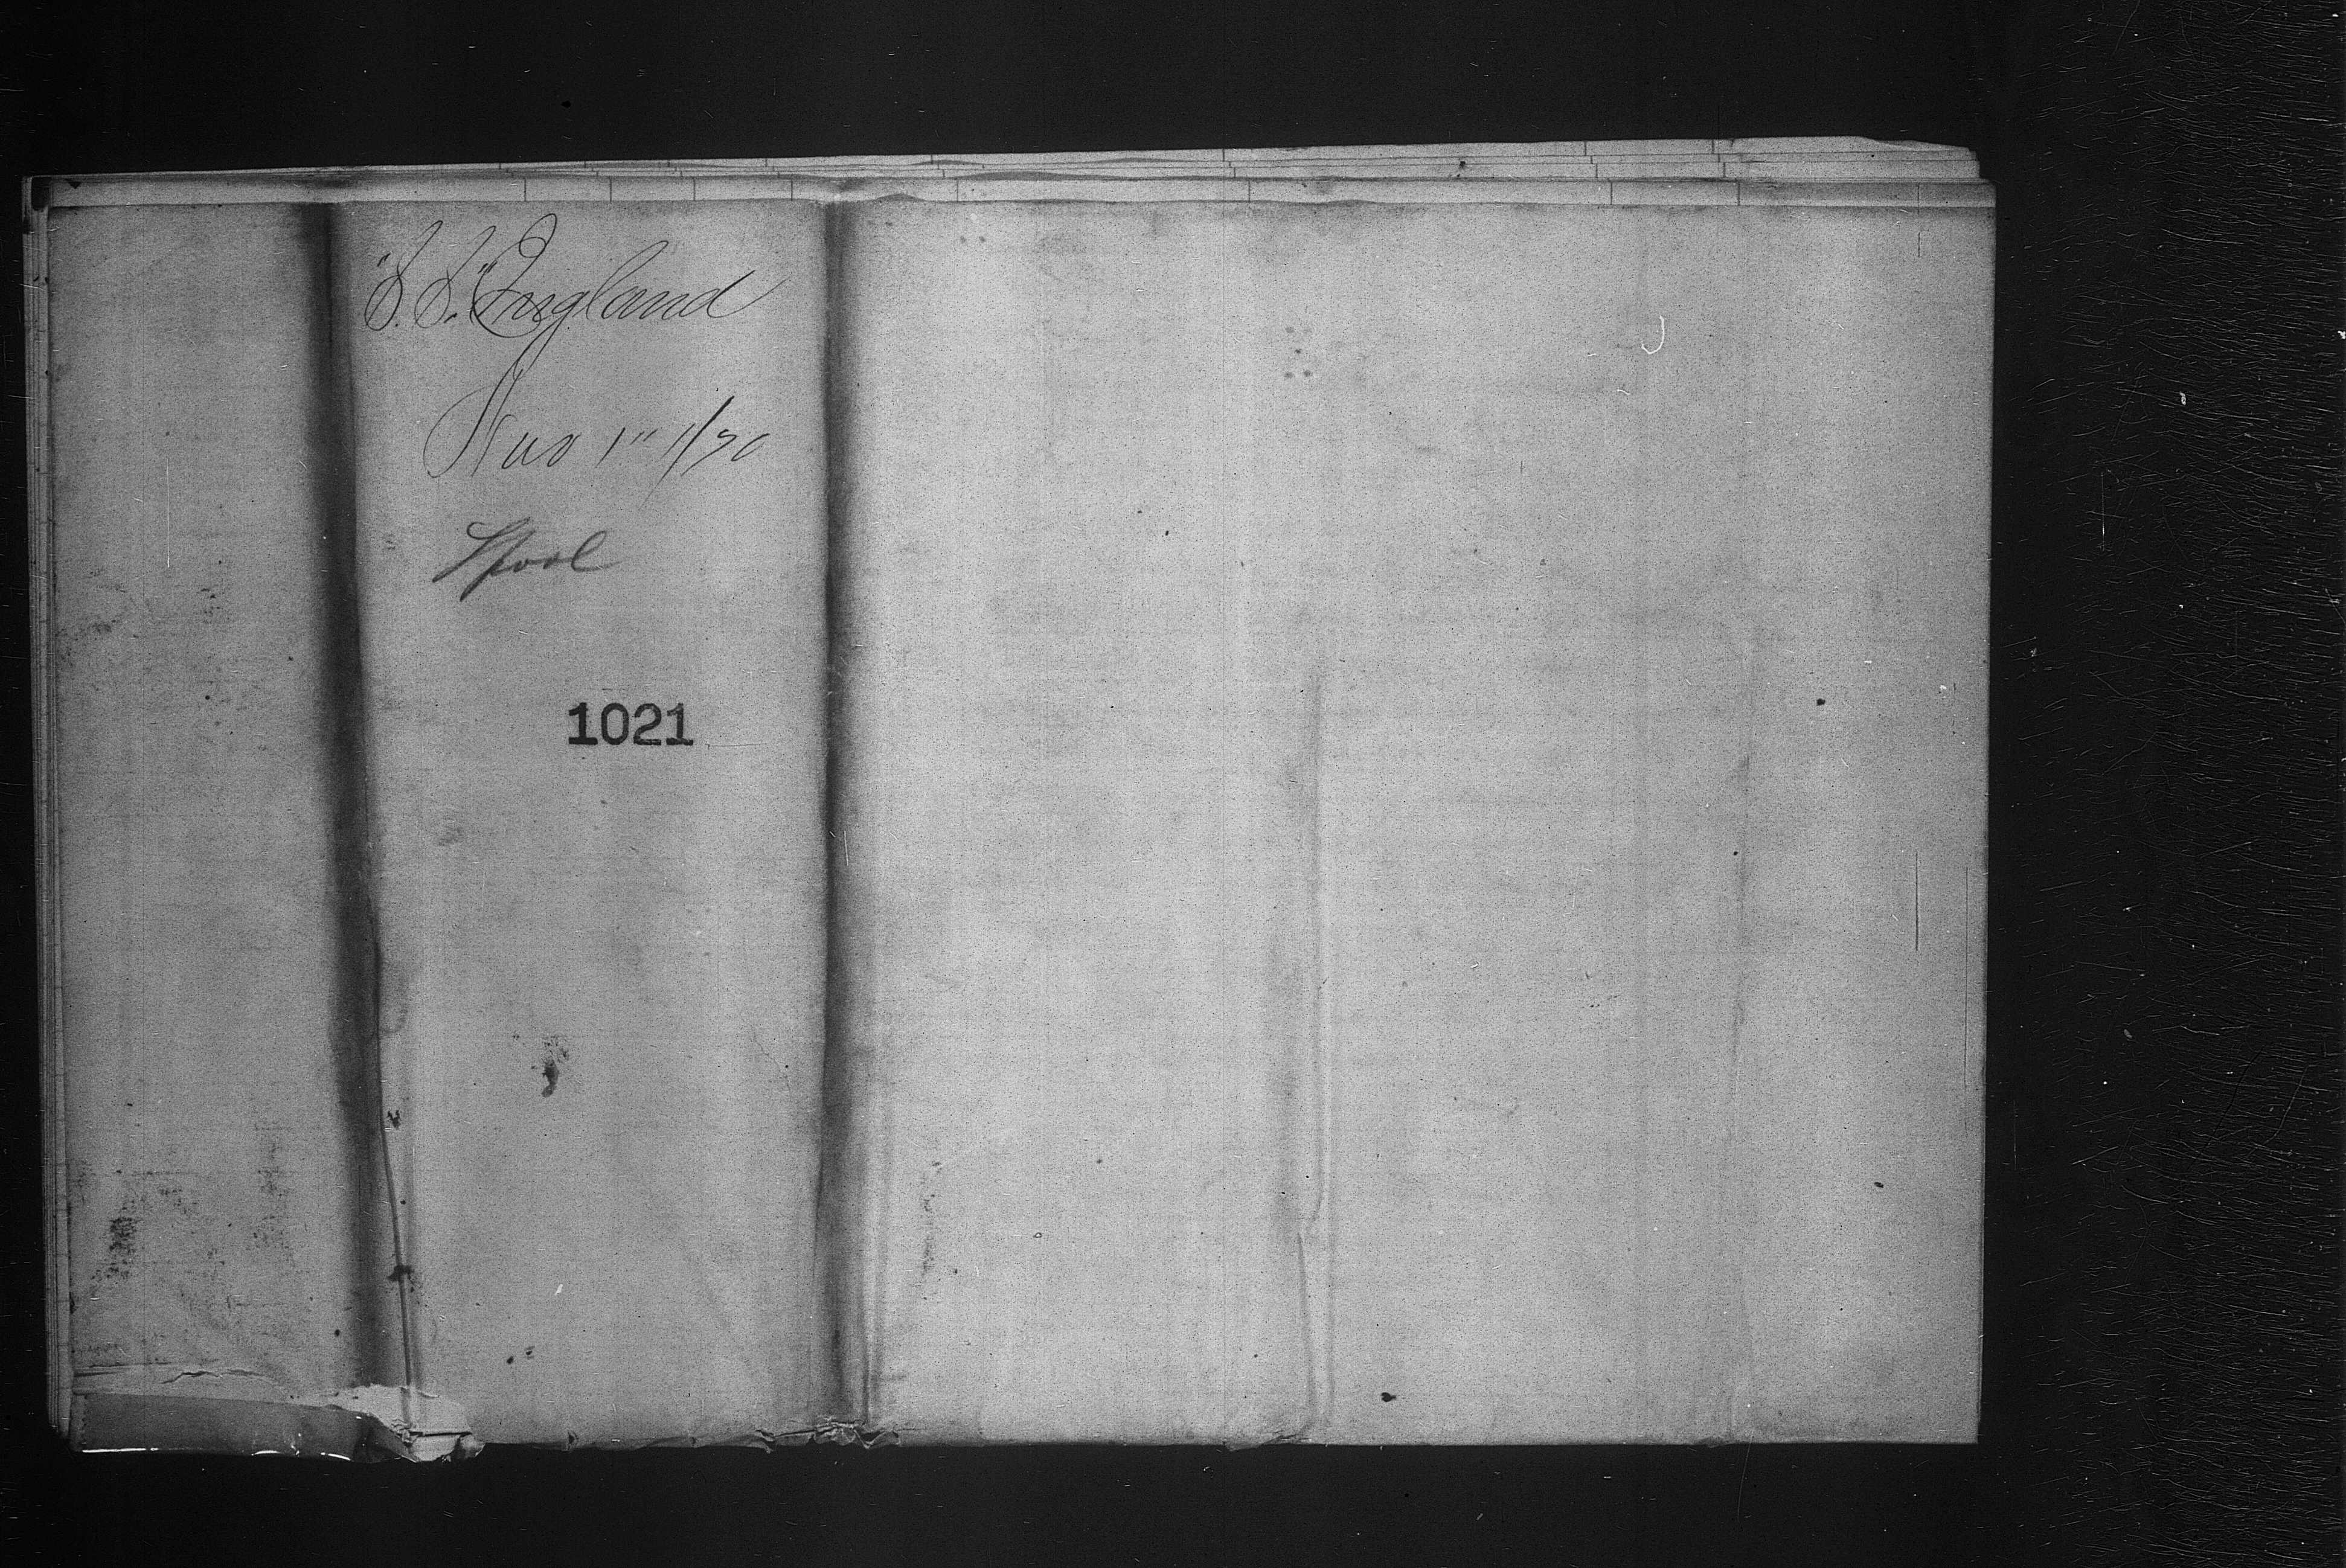 "S. S." England
Nov 1" 1/70
Lpool
1021